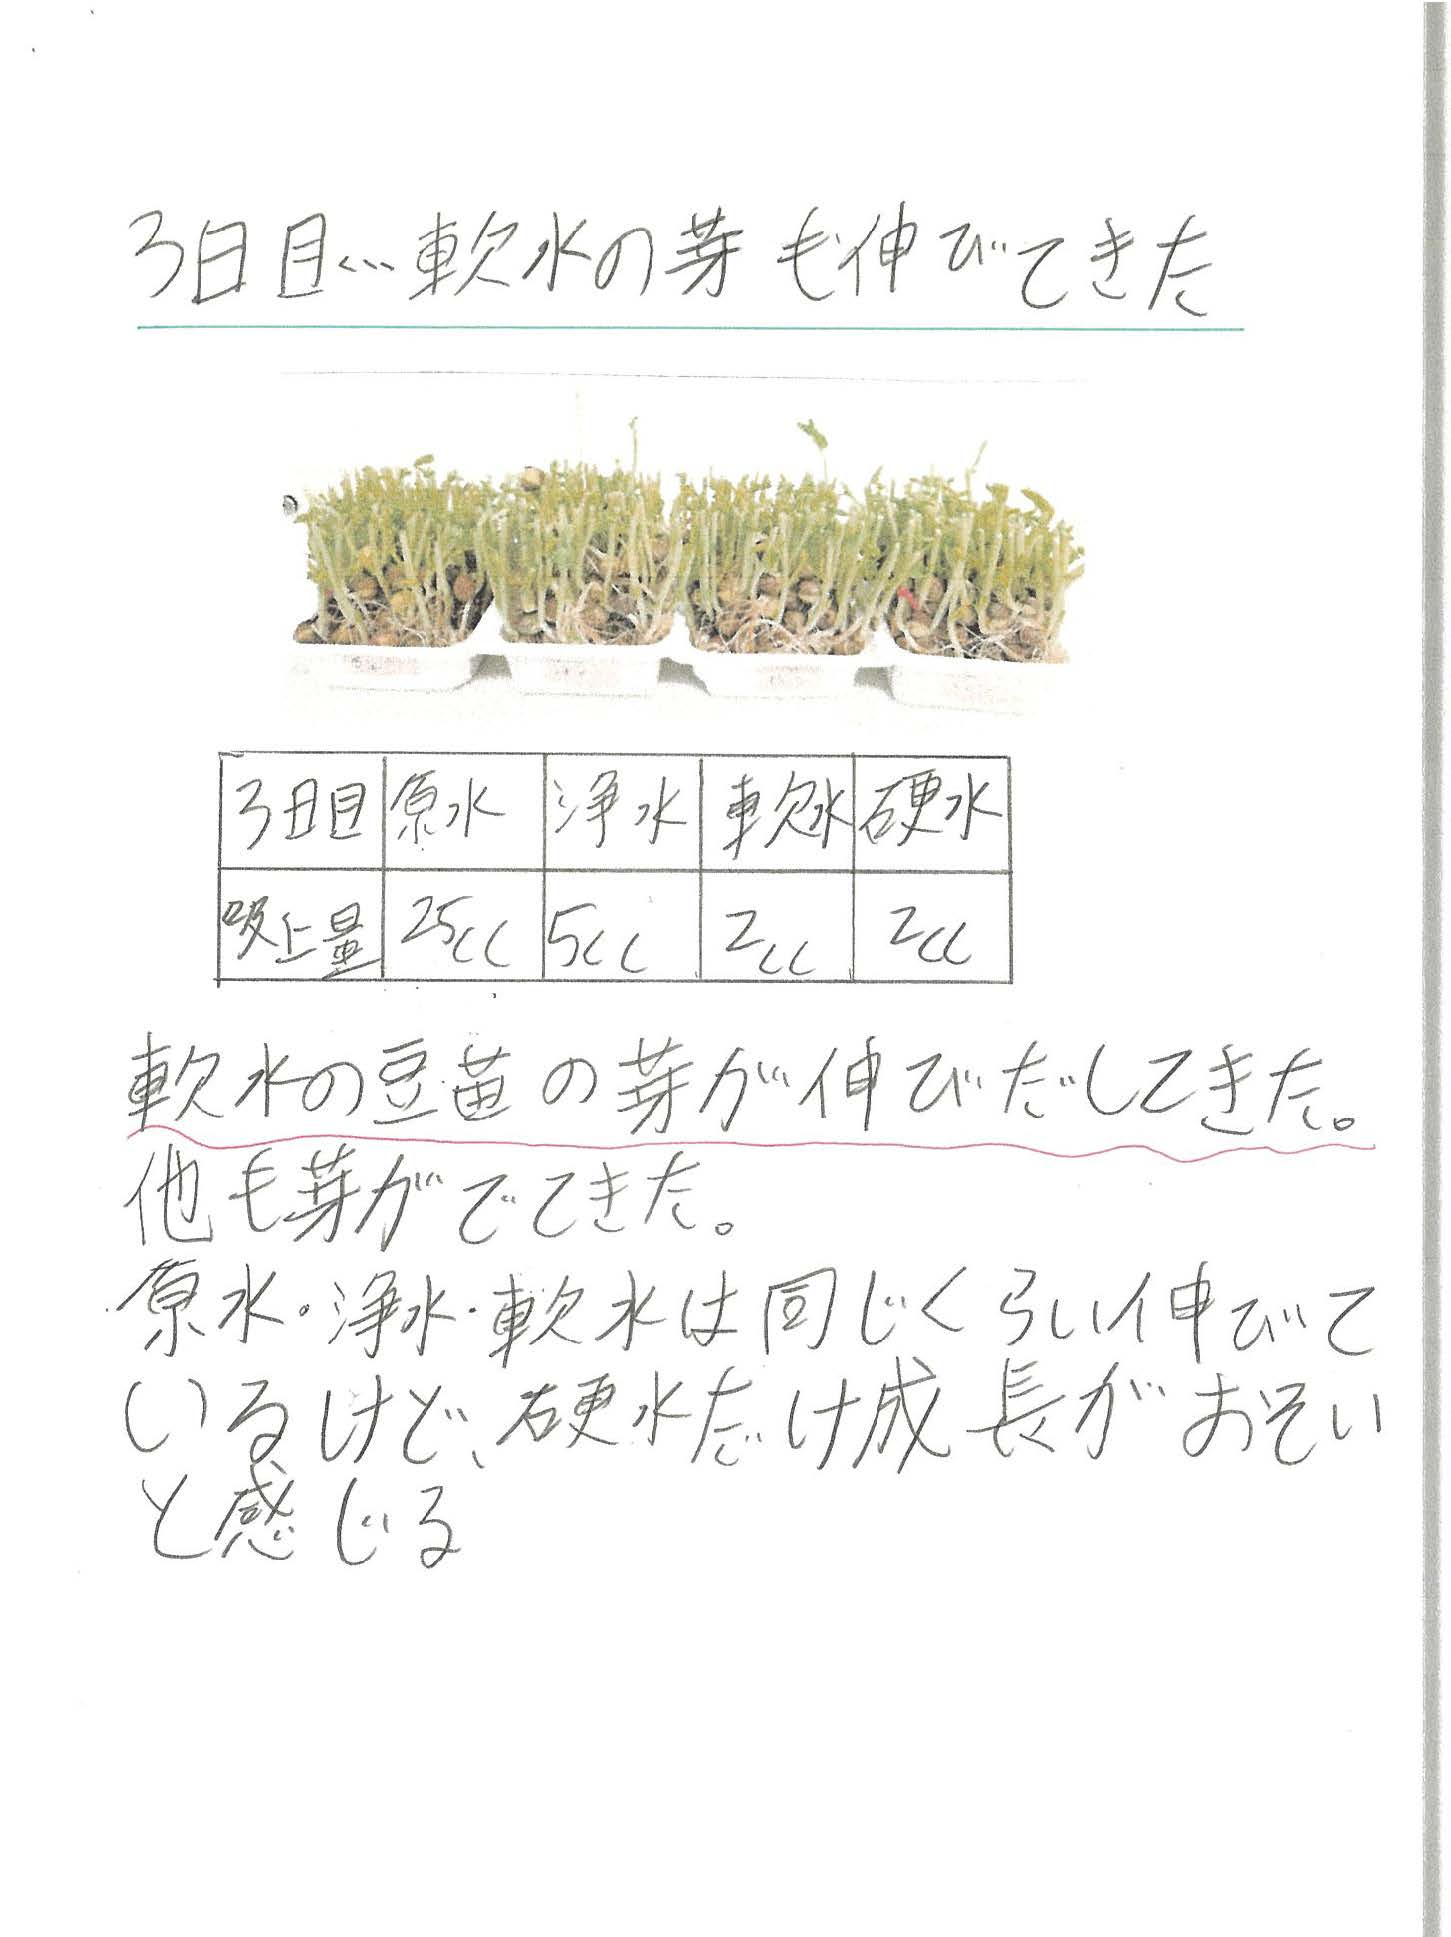 3日目…軟水の芽も伸びてきた
3日目 原水 浄水 軟水 硬水
吸上量 25cc 5cc 2cc 2cc
軟水の豆苗の芽が伸びだしてきた。
他も芽がでてきた。
原水・浄水・軟水は同じくらい伸びて
いるけど、硬水だけ成長がおそい
と感じる